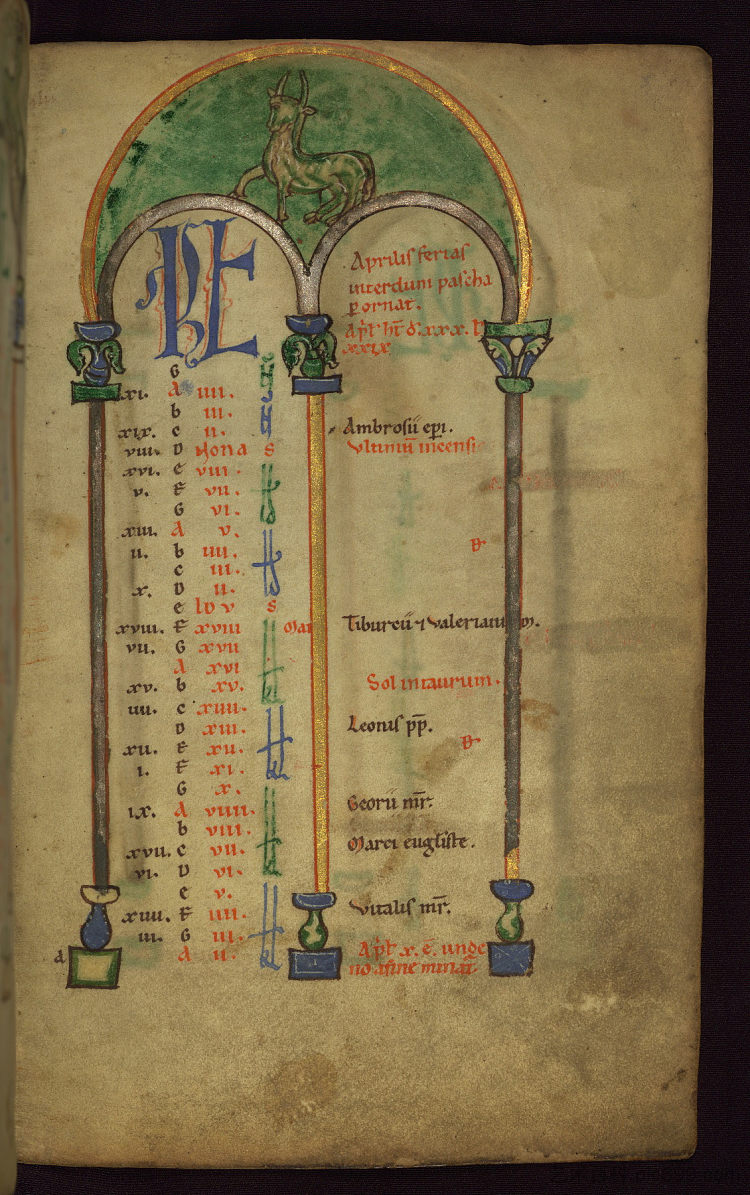 KL
Aprilis ferias
interdum pascha
p ornat.
Apl' ht' d'. xxx. l'
xxix
G
xi. A iiii.
b iii.
xix. c ii. Ambrosii epi.
viii. D Nona s Vltimu incensi
xvi. e viii.
v. F vii.
G vi.
xiii. A v.
ii. b iiii.
c iii.
x. D ii.
e Id v s
xviii. F xviii Mai Tiburcii ⁊ Valeriani m.
vii. G xvii
A xvi
xv. b xv. Sol in taurum.
iiii. c xiiii.
D xiii. Leonis pp.
xii. E xii.
i. F xi.
G x.
ix. A viiii. Georii mr.
b viii.
xvii. c vii. Marci eugliste.
vi. D vi.
e v.
xiiii. F iiii. Vitalis mr.
iii. G iii.
A ii. Apl' x. e. unde
no a fine minat.